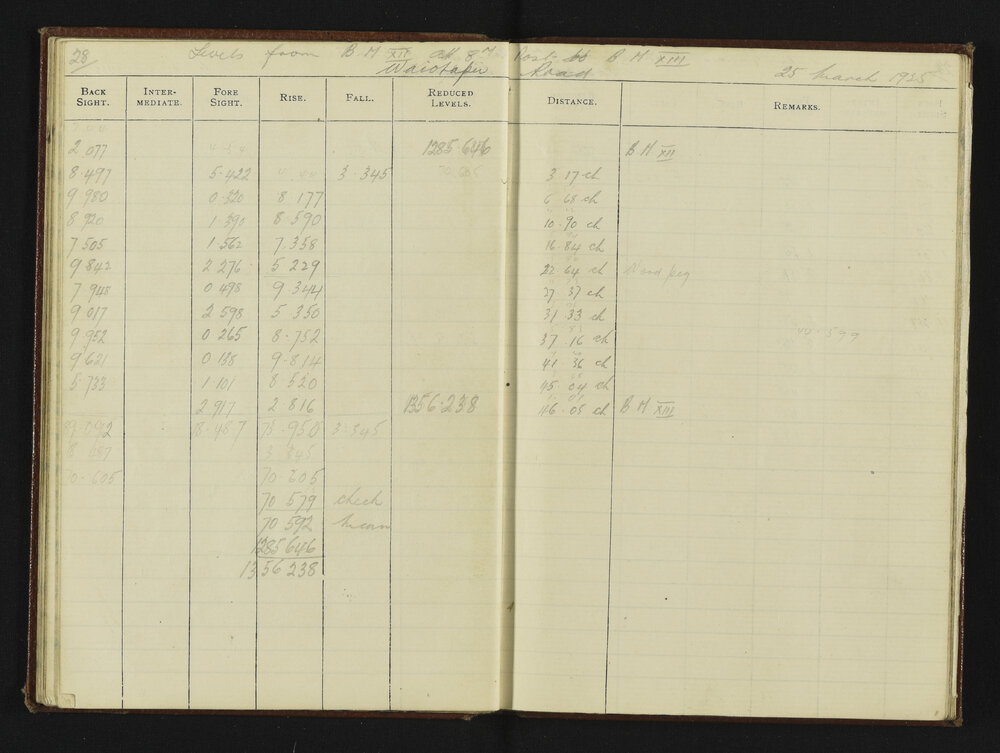 28 Levels from B M XII at 8 M Post to B M XIII
Waiotapu Road 25 March 1935
BACK SIGHT. INTER-MEDIATE. FORE SIGHT. RISE. FALL. REDUCED LEVELS. DISTANCE. REMARKS.
2 077 1285.646 B M XII
8.497 5.422 3 345 3 17 ch
9 980 0.320 8 177 6 68 ch
8 920 1.390 8.590 10.90 ch
7 505 1 562 7.358 16 84 ch
9 842 2 276 5 229 22 64 ch Wood peg
7 948 0 498 9.344 27 37 ch
9 017 2 598 5 350 31 33 ch
9 952 0 265 8.752 37 16 ch
9 621 0 138 9.814 41 36 ch
5.733 1 101 8 520 45 04 ch
2 917 2 816 1356.238 46.08 ch B M XIII
18.487 3.345
3 345
70.605
70 579 check
70 592 mean
1285 646
1356 238